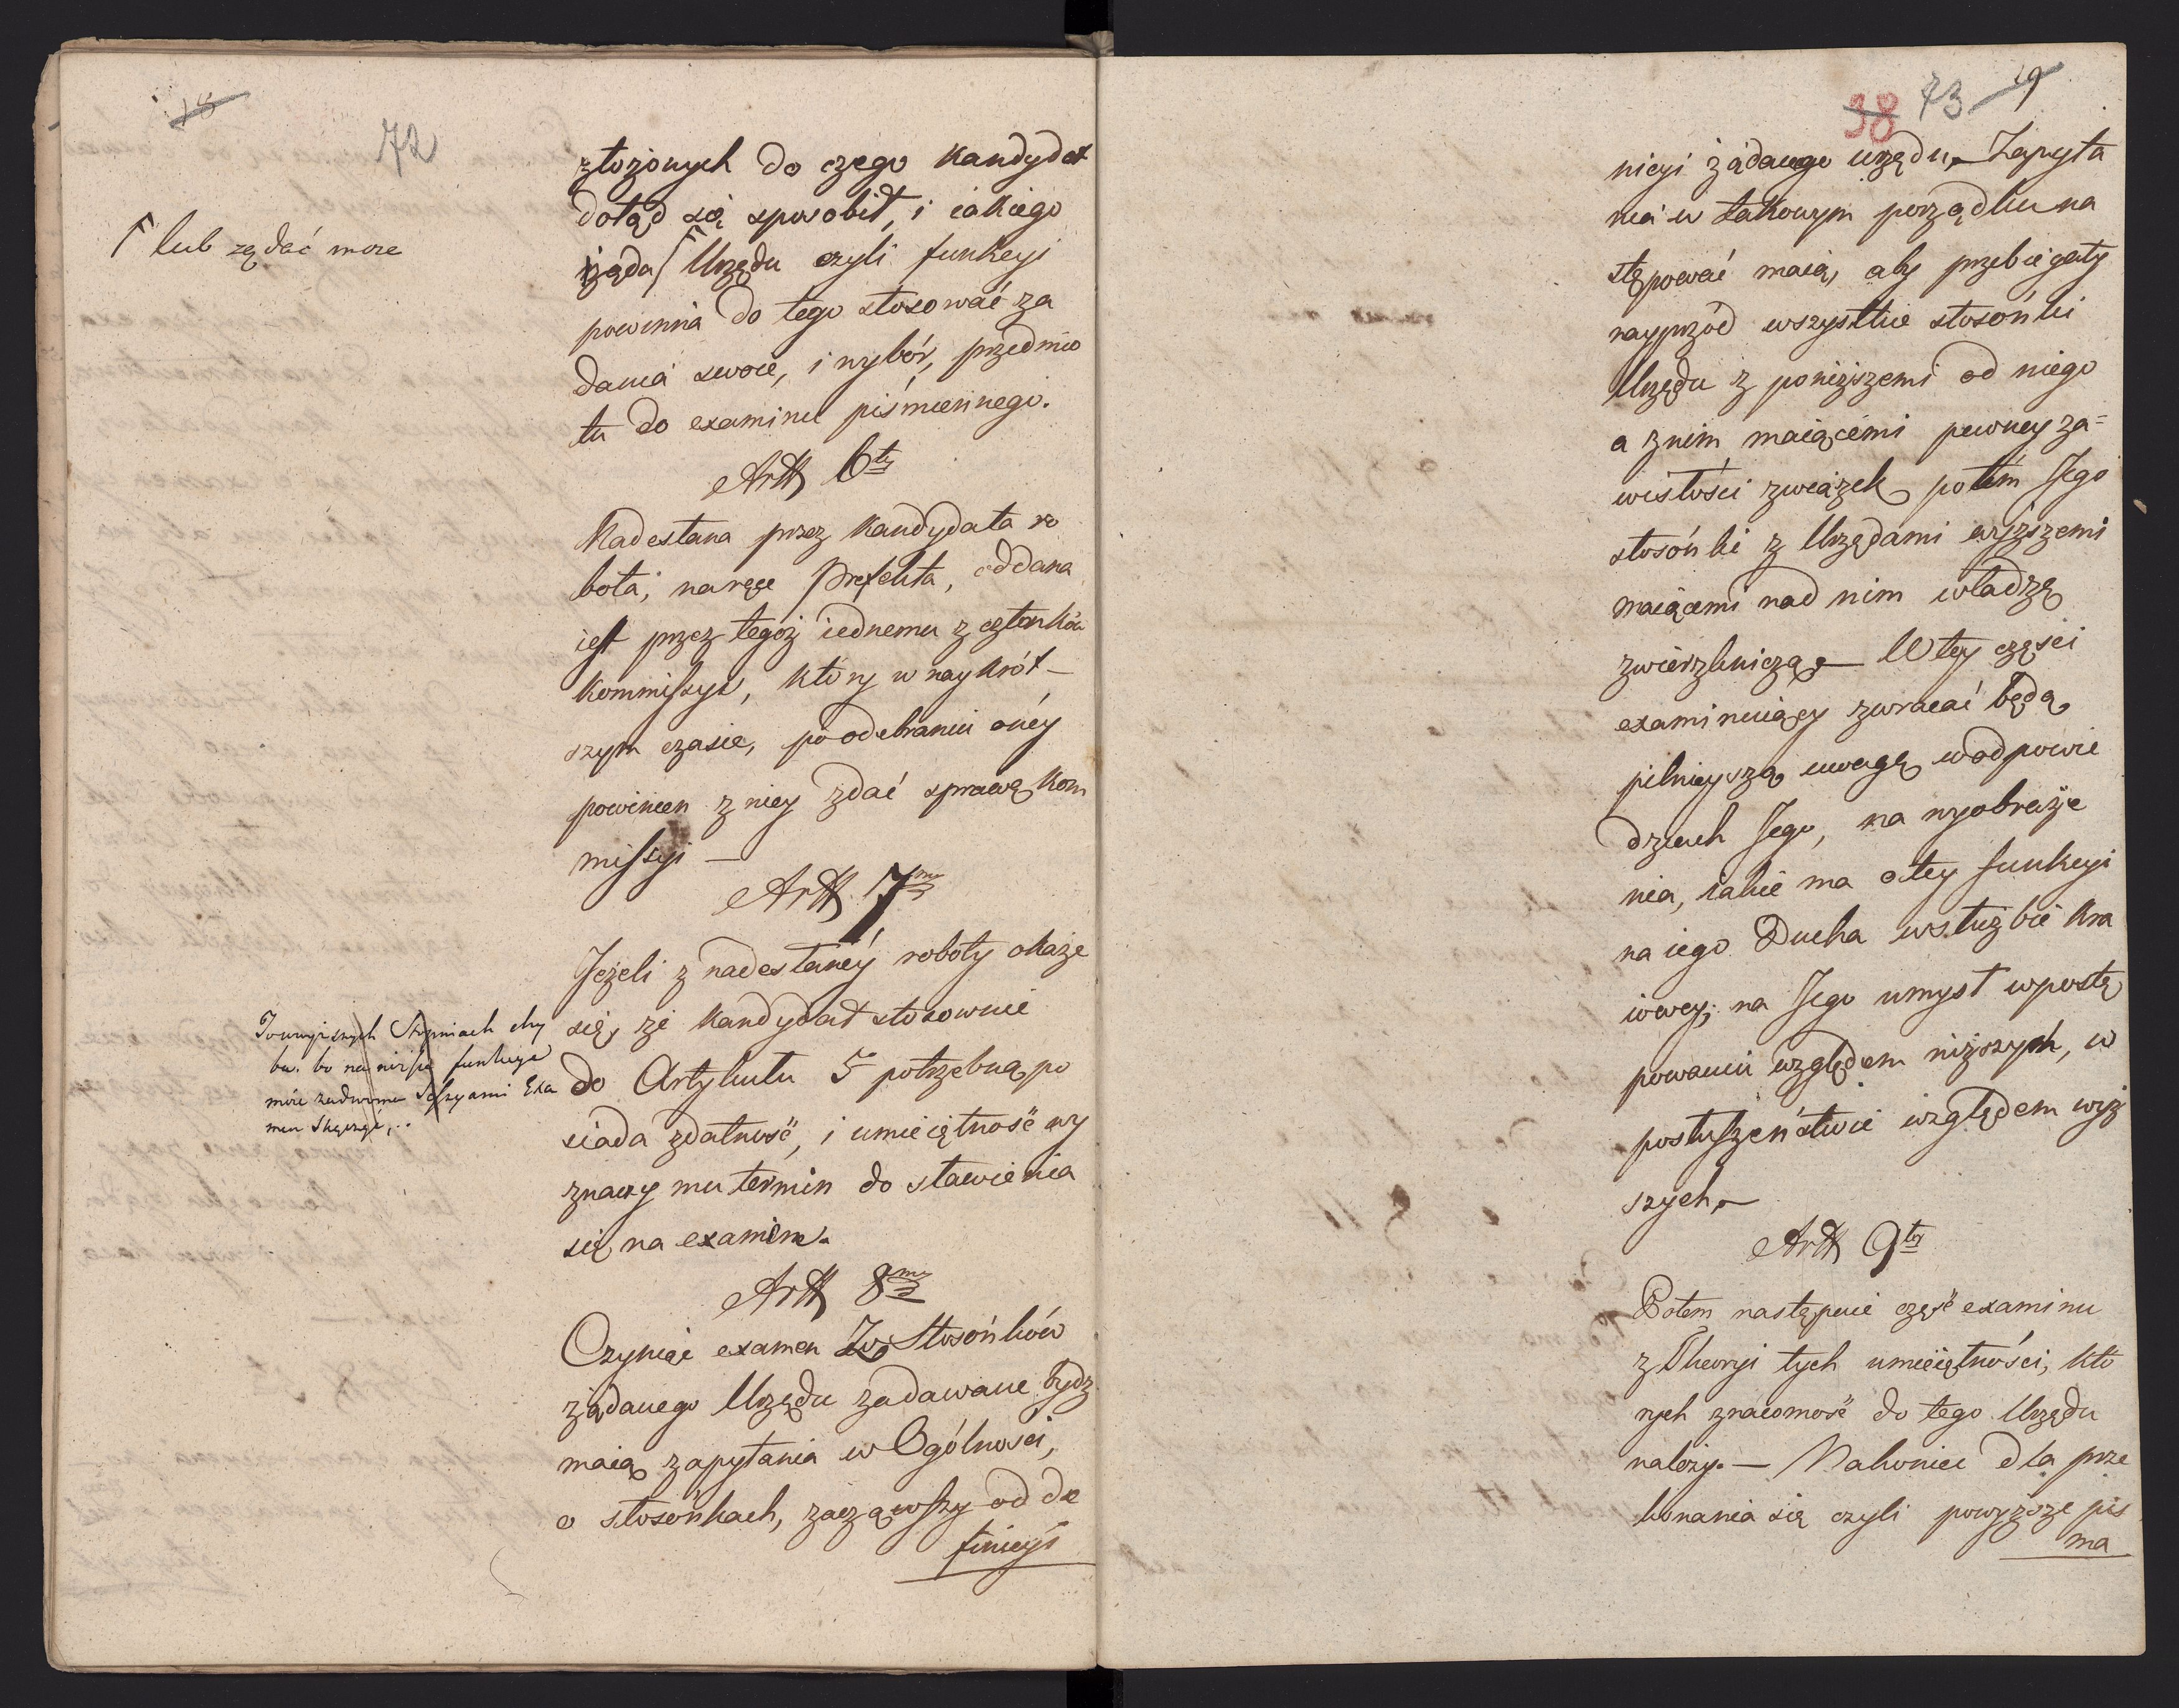 18
72
złożonych do czego kandydat
dotąd się sposobił, i iakiego
żąda Urzędu czyli funkcyi
powinna do tego stosować za
dania swoie, i wybór, przedmio
tu do examinu piśmiennego.
Artt 6ty
Nadesłana przez kandydata ro
bota, na ręce Prefekta, oddana
iest przez tegoż iednemu z członków
kommissyi, który w naykrót-
szym czasie, po odebraniu onéy
powinien z niey zdać sprawę kom
missyi —
Artt 7my
Jeżeli z nadesłanéy roboty okaże
się, że kandydat stosownie
do Artykułu 5 potrzebną po
siada zdatność, i umieiętność wy
znaczy mu termin do stawienia
się na examen.
Artt 8my
Czyniąc examen Ze Stosónków
żądanego Urzędu zadawane bydź
maią zapytania w Ogólności,
o stosónkach, zacząwszy od de
finicyi
lub żądać może
To w wyższych Stopniach chy
ba. bo na niższe funkcye
może zadwoma Sessyami Exa
men
38 73 19
nicyi żądanego urzędu — Zapyta
nia w takowym porządku na
stępować maią, aby przebiegały
nayprzód wszystkie stosónki
Urzędu z poniższemi od niego
a z nim maiącemi pewney za=
wisłości związek potém Jego
stosónki z Urzędami wyższemi
maiącemi nad nim władzę
zwierzchniczą — W tey części
examinuiący zwracać będą
pilnieyszą uwagę w odpowie
dziach Jego, na wyobraże
nia, iakie ma o tey funkcyi
na iego Ducha w służbie kra
iowey; na Jego umysł w postę
powaniu względem niższych, w
posłuszeństwie względem wyż
szych —
Artt 9ty
Potem następuie część examinu
z Theoryi tych umieiętności, któ
rych znaiomość do tego Urzędu
należy. — Nakoniec dla prze
konania się czyli powyższe pis
ma